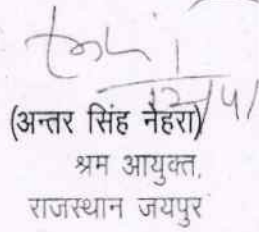 (अन्तर सिंह नेहरा)
श्रम आयुक्त,
राजस्थान जयपुर